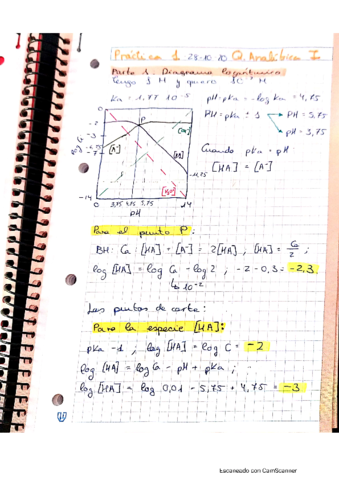 Práctica 1 28-10-20 Q. Analítica I
Parte 1. Diagrama logarítmico
tengo 1 M y quiero M
Ka = 1,77 · 10⁻⁵ pH=pKa = -log Ka = 4,75
PH = pKa ± 1 → PH = 5,75
→ pH = 3,75
Cuando pKa = pH
[HA] = [A⁻]
0
-2
-3
-7
-14
P
[A⁻]
-11,25
0 3,75 4,75 5,75 14
pH
Para el punto P:
BH: Ca = [HA] + [A⁻] = 2[HA], [HA] = Ca/2 ;
log [HA] = log Ca - log 2 , -2 - 0,3 = -2,3
↳ 10⁻²
Los puntos de corte:
Para la especie [HA]:
pKa -1 , log [HA] = log C = -2
log [HA] = log Ca - pH + pKa ;
log [HA] = log 0,01 - 5,75 + 4,75 = -3
Escaneado con CamScanner